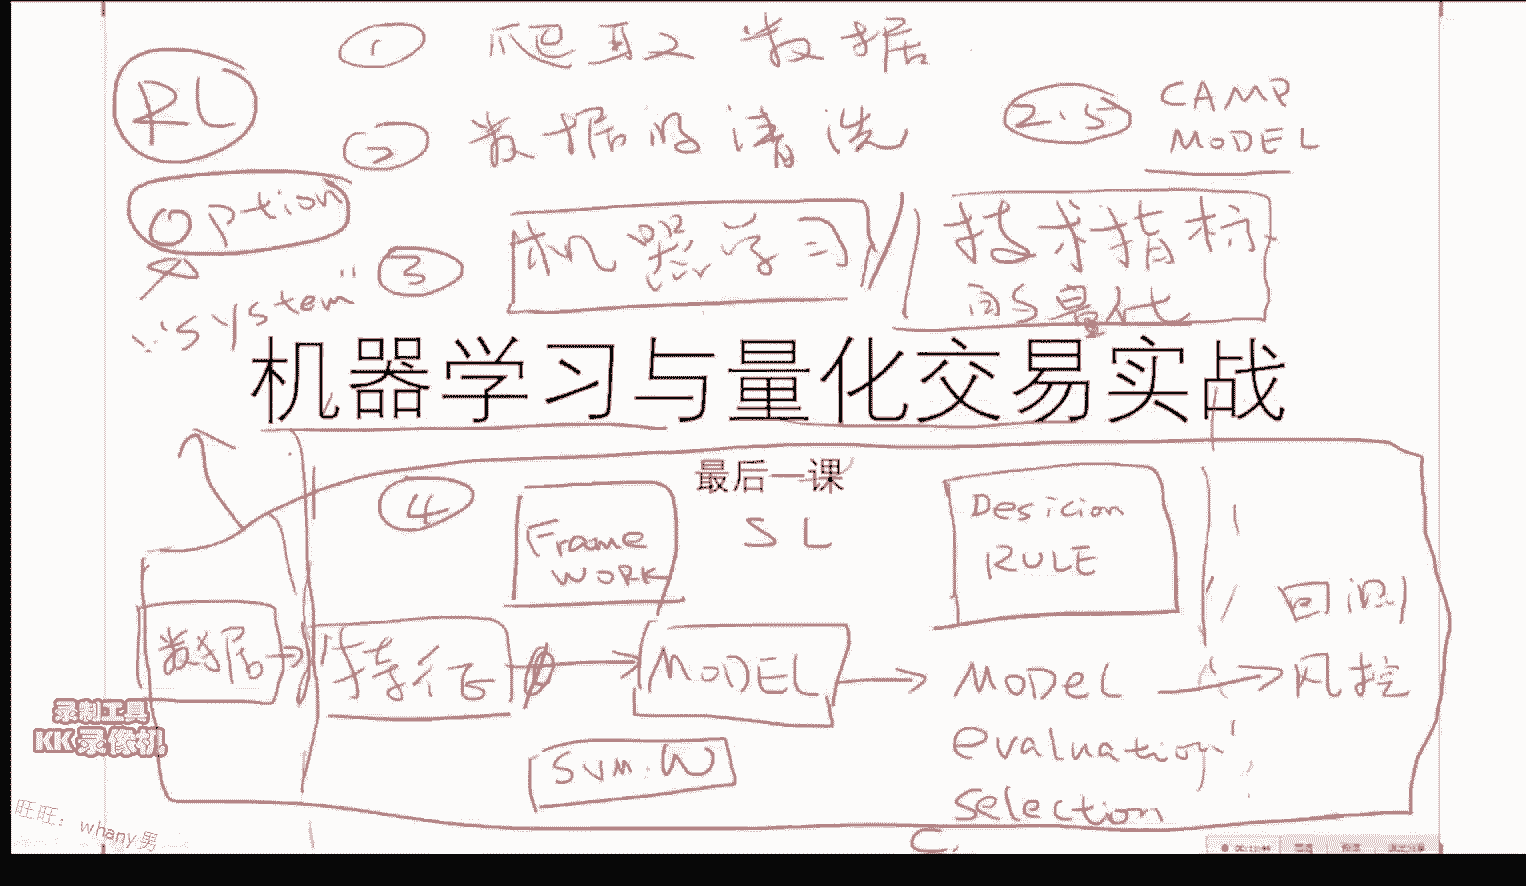 ① 爬取数据
RL
② 数据的清洗
2.5 CAMP
MODEL
option
③ 机器学习 // 技术指标
的量化
"system"
机器学习与量化交易实战
最后一课
④ Frame
WORK
SL
Desicion
RULE
回测
数据 → 特征 → MODEL → MODEL → 风控
evaluation
selection
SVM. W
C.
录制工具
KK录像机
旺旺：whany男